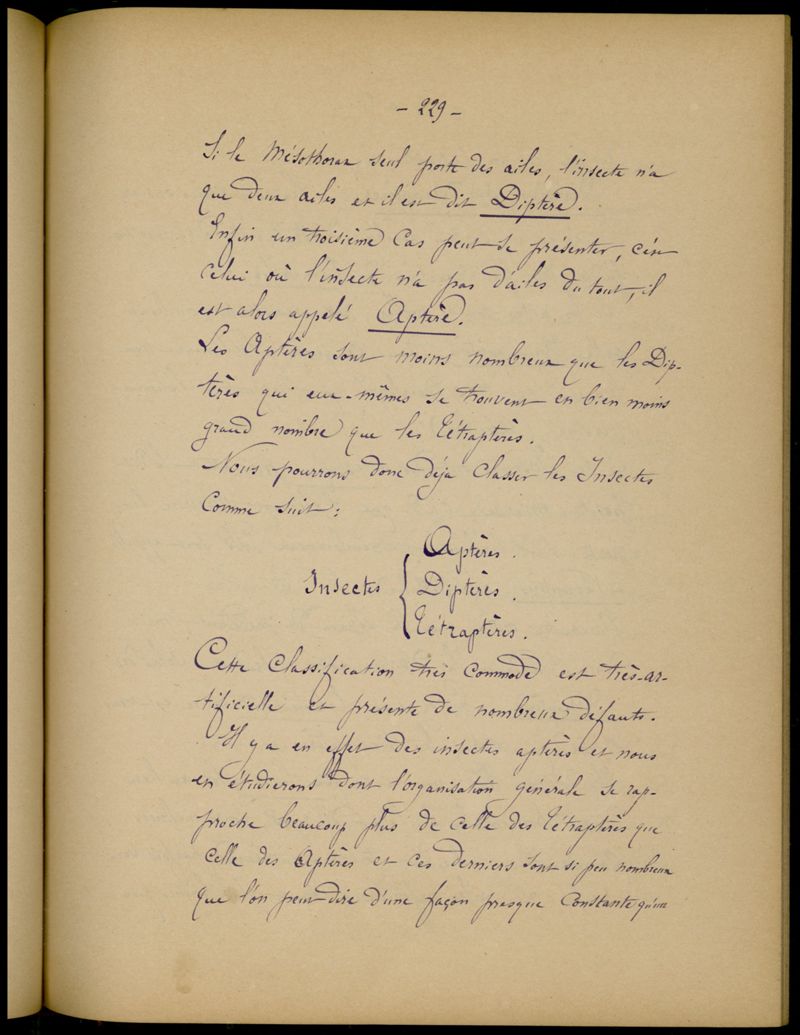 - 229 -
Si le Mésothorax seul porte des ailes, l'insecte n'a
que deux ailes et il est dit Diptère.
Enfin un troisième cas peut se présenter, c'est
celui où l'insecte n'a pas d'ailes du tout, il
est alors appelé Aptère.
Les Aptères sont moins nombreux que les Dip-
tères qui eux-mêmes se trouvent en bien moins
grand nombre que les Tétraptères.
Nous pourrons donc déjà classer les Insectes
comme suit :
Aptères.
Insectes { Diptères.
Tétraptères.
Cette classification très commode est très-ar-
tificielle et présente de nombreux défauts.
Il y a en effet des insectes aptères et nous
en étudierons dont l'organisation générale se rap-
proche beaucoup plus de celle des Tétraptères que
celle des Aptères et ces derniers sont si peu nombreux
que l'on peut dire d'une façon presque constante qu'un